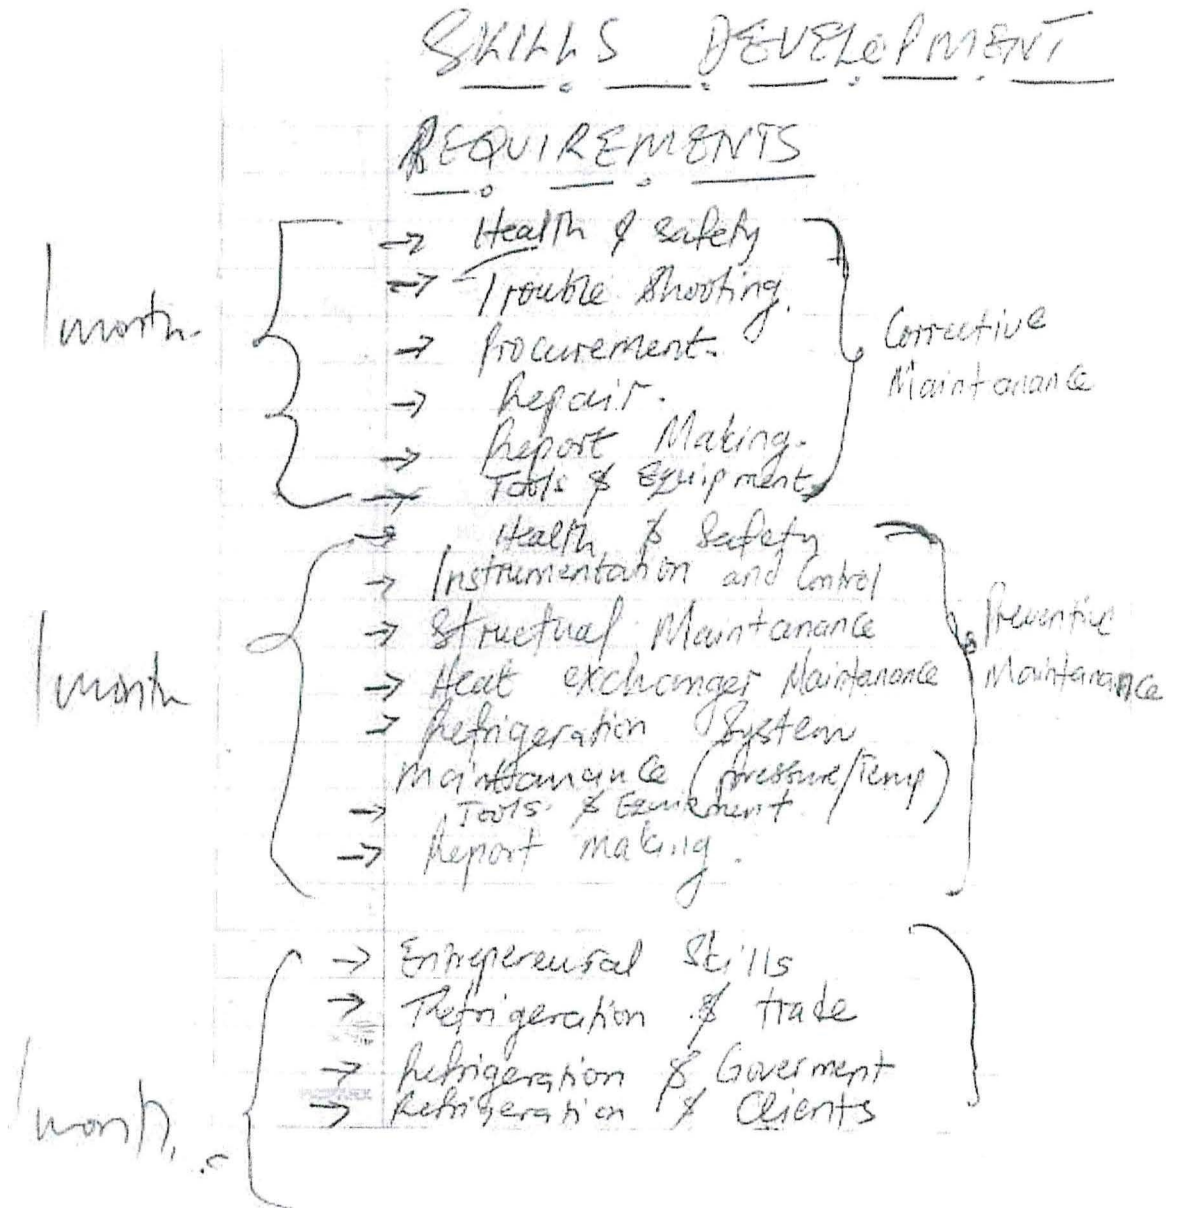 SKILLS DEVELOPMENT
REQUIREMENTS
1 month.
→ Health & Safety
→ Trouble Shooting.
→ Procurement.
→ Repair.
→ Report Making.
→ Tools & Equipment
Corrective
Maintanance
1 month
→ Health & Safety
→ Instrumentation and Control
→ Structual Maintanance
→ Heat exchanger Maintenance
→ Refrigeration System
Maintanance (Pressure/Temp)
→ Tools & Equipment.
→ Report making.
Preventive
Maintanance
1 month.
→ Entrepereusral Skills
→ Refrigeration & trade
→ Refrigeration & Goverment
→ Refrigeration & Clients